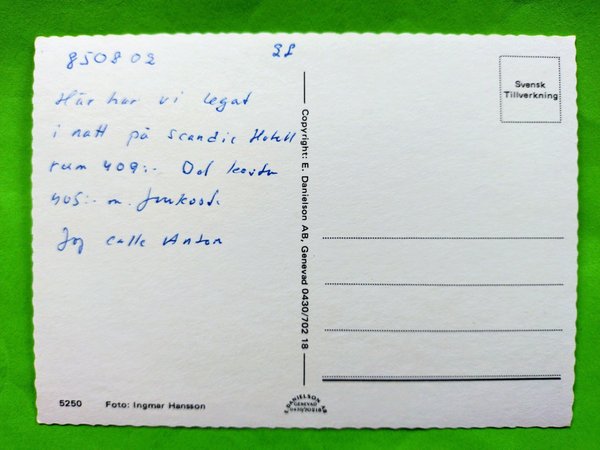 850802
Här har vi legat
i natt på Scandic Hotell
rum 409:- Det kostar
405:- m. frukost.
Jag calle Anton
Svensk
Tillverkning
Copyright: E. Danielson AB, Genevad 0430/702 18
5250 Foto: Ingmar Hansson
E. DANIELSON AB
GENEVAD
0430/70218